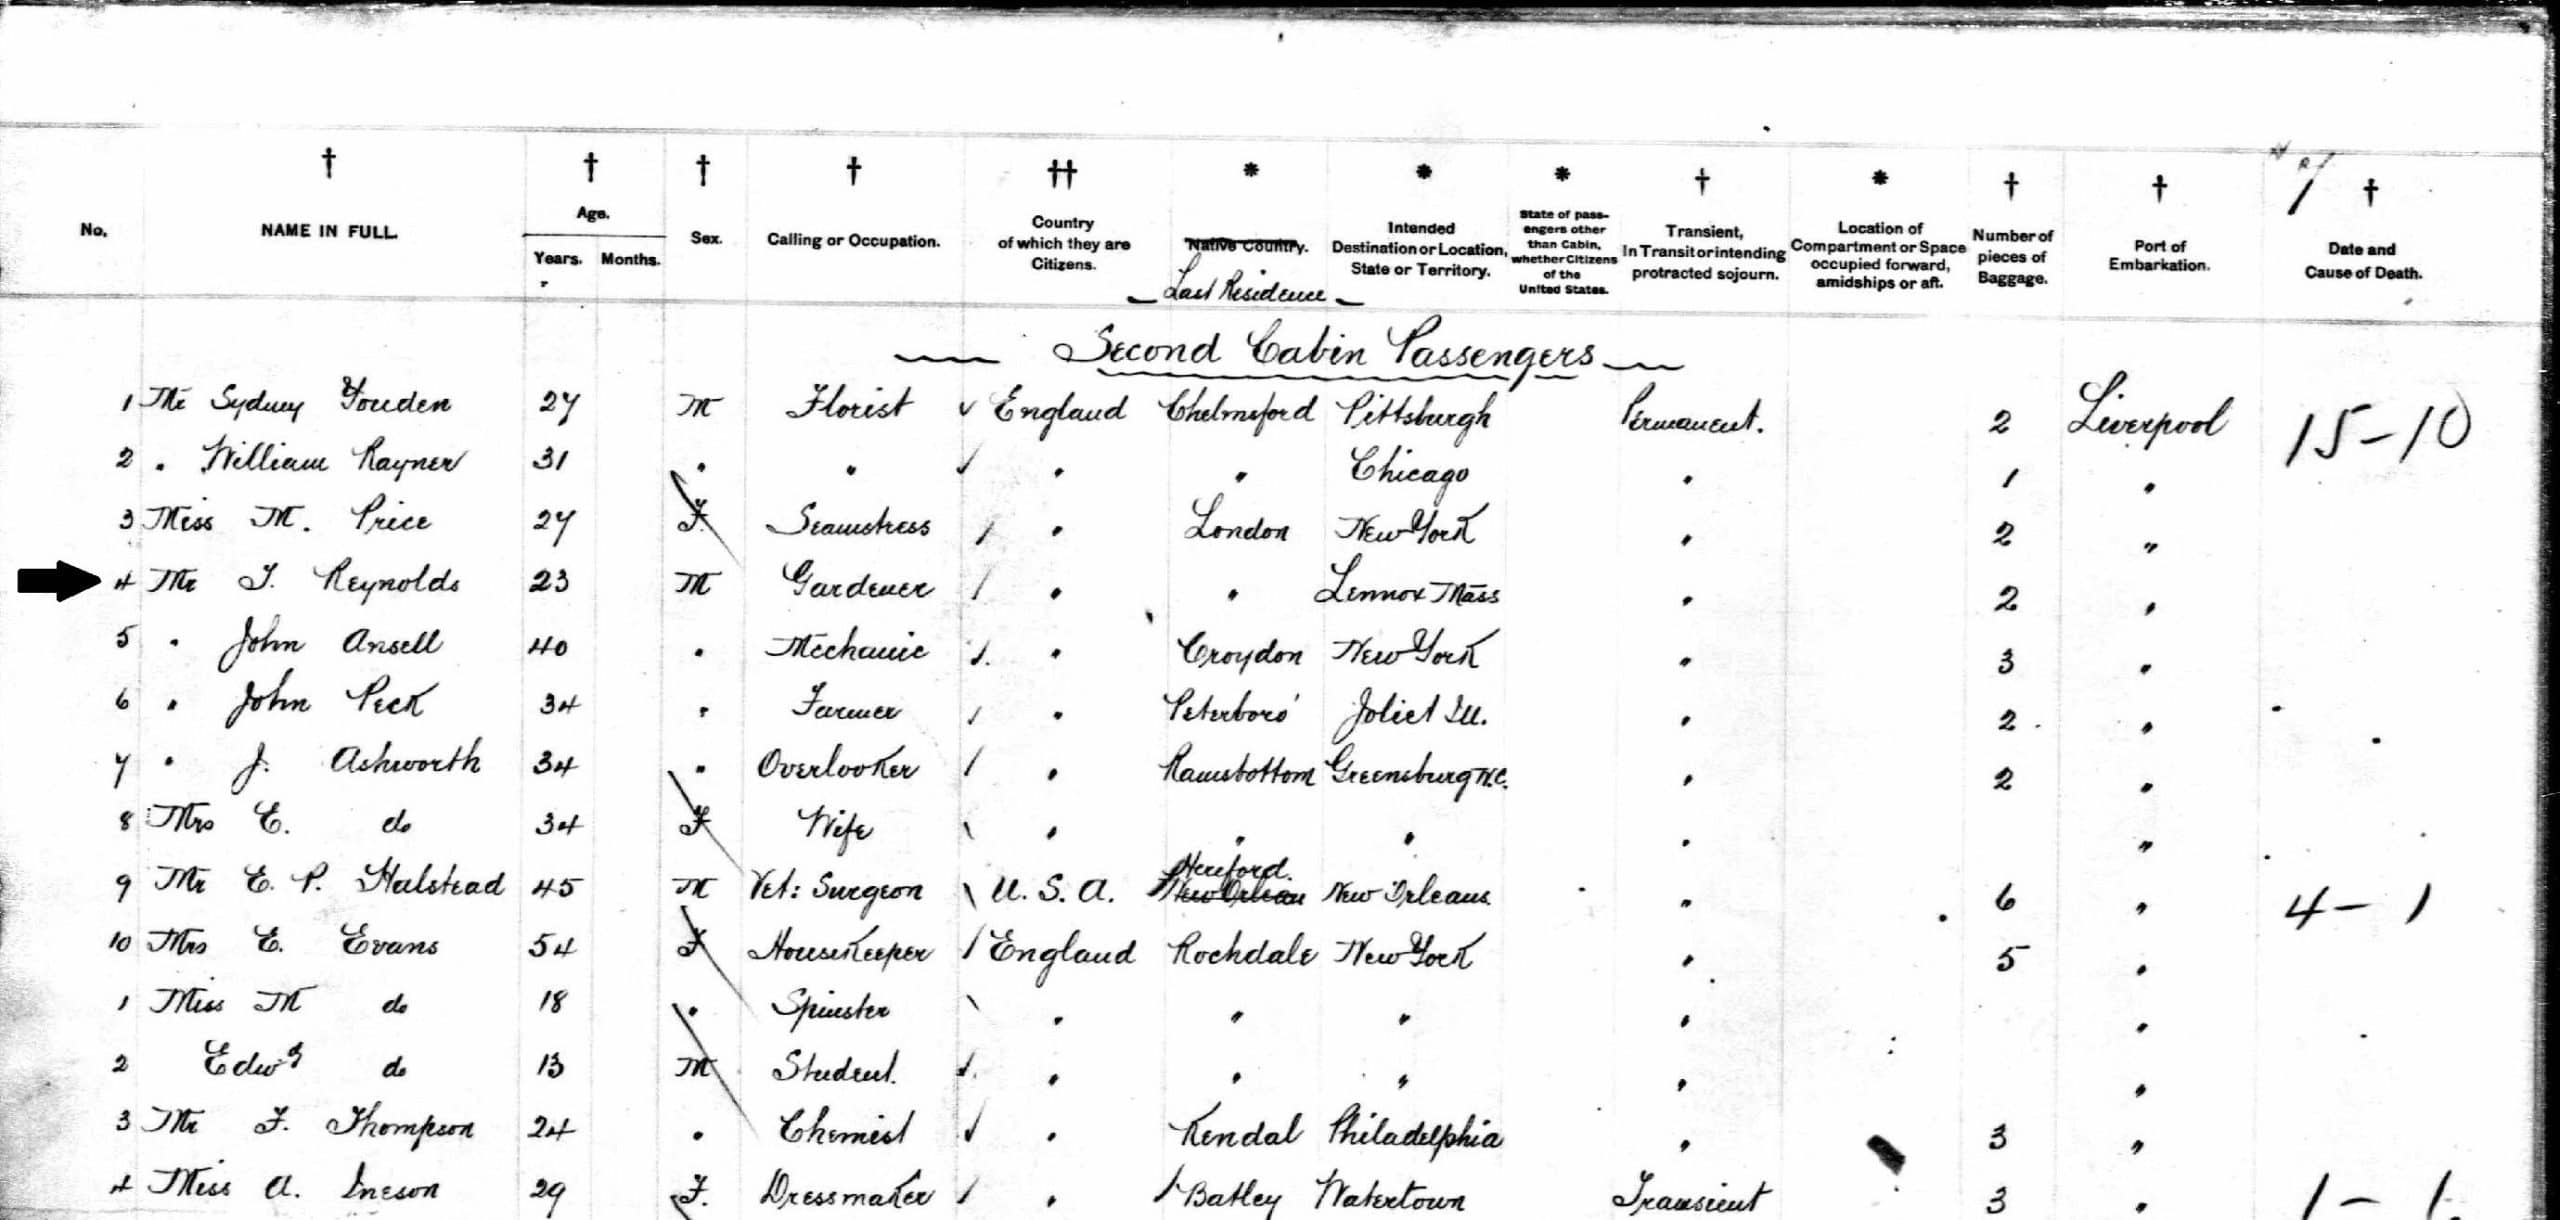 No. NAME IN FULL. Age. Years. Months. Sex. Calling or Occupation. Country of which they are Citizens. Native Country. Last Residence Intended Destination or Location, State or Territory. State of passengers other than Cabin, whether Citizens of the United States. Transient, In Transit or intending protracted sojourn. Location of Compartment or Space occupied forward, amidships or aft. Number of pieces of Baggage. Port of Embarkation. Date and Cause of Death.
Second Cabin Passengers
1 Mr Sydney Youden 27 M Florist ✓ England Chelmsford Pittsburgh Permanent. 2 Liverpool 15-10
2 " William Rayner 31 " " ✓ " " Chicago " 1 "
3 Miss M. Price 27 F. Seamstress / " London New York " 2 "
4 Mr T. Reynolds 23 M Gardener / " " Lennox Mass " 2 "
5 " John Ansell 40 " Mechanic ✓ " Croydon New York " 3 "
6 " John Peck 34 " Farmer / " Peterboro' Joliet Ill. " 2 "
7 " J. Ashworth 34 " Overlooker / " Ramsbottom Greensburg N.C. " 2 "
8 Mrs E. do 34 F Wife \ " " " " "
9 Mr E. P. Halstead 45 M Vet: Surgeon \ U. S. A. Hereford. New Orlean New Orleans " 6 " 4-1
10 Mrs E. Evans 54 F Housekeeper / England Rochdale New York " 5 "
1 Miss M do 18 " Spinster \ " " " " "
2 Edwd do 13 M Student. ✓ " " " " "
3 Mr F. Thompson 24 " Chemist ✓ " Kendal Philadelphia " 3 "
4 Miss A. Ineson 29 F. Dressmaker / " Batley Watertown Transient 3 " 1-1